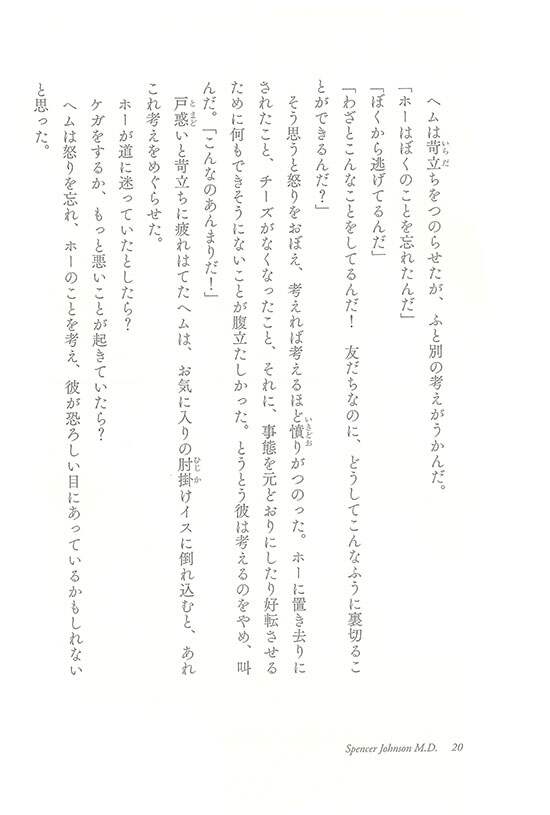 ヘムは苛立ちをつのらせたが、ふと別の考えがうかんだ。
「ホーはぼくのことを忘れたんだ」
「ぼくから逃げてるんだ」
「わざとこんなことをしてるんだ！　友だちなのに、どうしてこんなふうに裏切るこ
とができるんだ？」
そう思うと怒りをおぼえ、考えれば考えるほど憤りがつのった。ホーに置き去りに
されたこと、チーズがなくなったこと、それに、事態を元どおりにしたり好転させる
ために何もできそうにないことが腹立たしかった。とうとう彼は考えるのをやめ、叫
んだ。「こんなのあんまりだ！」
戸惑いと苛立ちに疲れはてたヘムは、お気に入りの肘掛けイスに倒れ込むと、あれ
これ考えをめぐらせた。
ホーが道に迷っていたとしたら？
ケガをするか、もっと悪いことが起きていたら？
ヘムは怒りを忘れ、ホーのことを考え、彼が恐ろしい目にあっているかもしれない
と思った。
Spencer Johnson M.D. 20